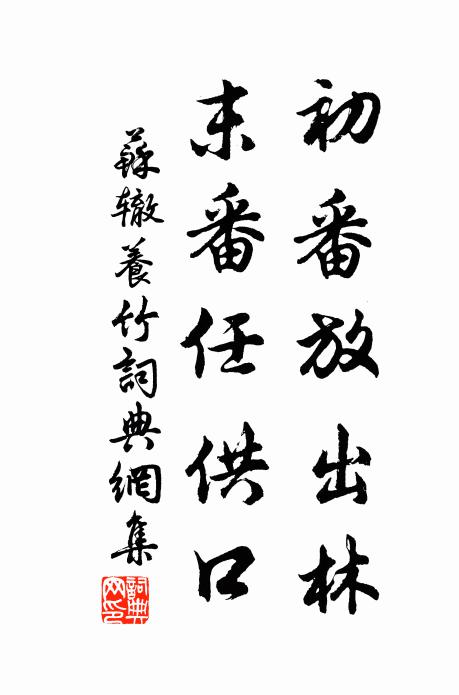 初番放出林
末番任供口
蘇辙養竹詞典網集
詞典
网印